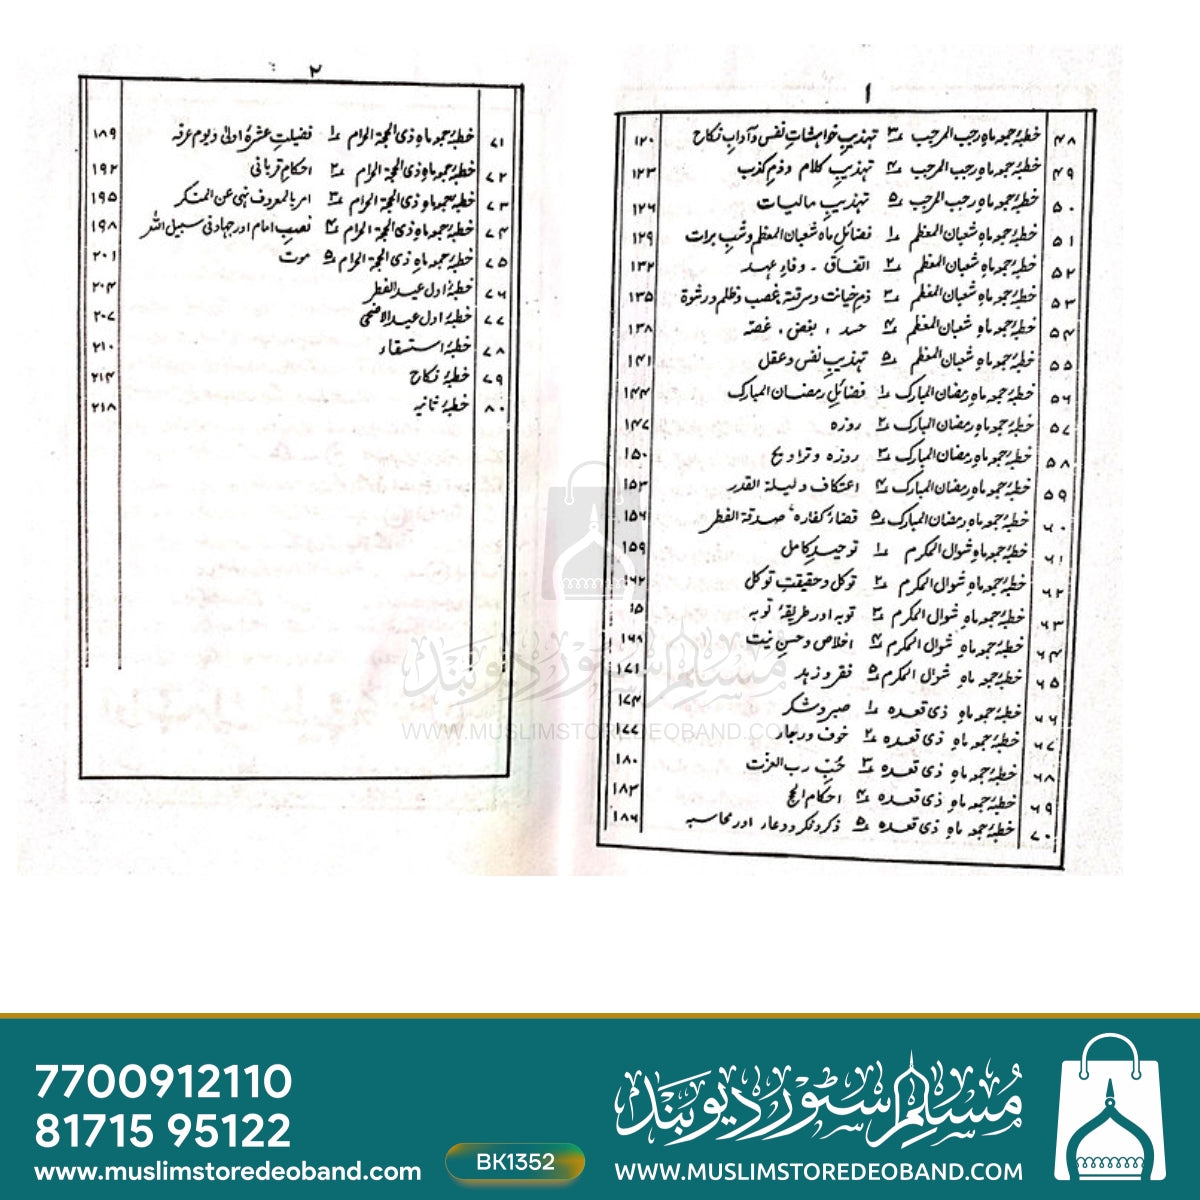 ۱
۴۸ خطبۂ جمعہ ماہ رجب المرجب ۳ تہذیبِ خواہشاتِ نفس و آدابِ نکاح ۱۲۰
۴۹ خطبۂ جمعہ ماہ رجب المرجب ۴ تہذیبِ کلام و ذمِ کذب ۱۲۳
۵۰ خطبۂ جمعہ ماہ رجب المرجب ۵ تہذیبِ مالیات ۱۲۶
۵۱ خطبۂ جمعہ ماہ شعبان المعظم ۱ فضائلِ ماہ شعبان المعظم و شبِ برات ۱۲۹
۵۲ خطبۂ جمعہ ماہ شعبان المعظم ۲ اتفاق ۔ وفاءِ عہد ۱۳۲
۵۳ خطبۂ جمعہ ماہ شعبان المعظم ۳ ذمِ خیانت و سرقہ غصب و ظلم و رشوۃ ۱۳۵
۵۴ خطبۂ جمعہ ماہ شعبان المعظم ۴ حسد ، بغض ، غصہ ۱۳۸
۵۵ خطبۂ جمعہ ماہ شعبان المعظم ۵ تہذیبِ نفس و عقل ۱۴۱
۵۶ خطبۂ جمعہ ماہ رمضان المبارک ۱ فضائلِ رمضان المبارک ۱۴۴
۵۷ خطبۂ جمعہ ماہ رمضان المبارک ۲ روزہ ۱۴۷
۵۸ خطبۂ جمعہ ماہ رمضان المبارک ۳ روزہ و تراویح ۱۵۰
۵۹ خطبۂ جمعہ ماہ رمضان المبارک ۴ اعتکاف و لیلۃ القدر ۱۵۳
۶۰ خطبۂ جمعہ ماہ رمضان المبارک ۵ قضاء، کفارہ، صدقۃ الفطر ۱۵۶
۶۱ خطبۂ جمعہ ماہ شوال المکرم ۱ توحیدِ کامل ۱۵۹
۶۲ خطبۂ جمعہ ماہ شوال المکرم ۲ توکل و حقیقتِ توکل ۱۶۲
۶۳ خطبۂ جمعہ ماہ شوال المکرم ۳ توبہ اور طریقۂ توبہ
۶۴ خطبۂ جمعہ ماہ شوال المکرم ۴ اخلاص و حسنِ نیت
۶۵ خطبۂ جمعہ ماہ شوال المکرم ۵ فقر و زہد ۱۷۱
۶۶ خطبۂ جمعہ ماہ ذی قعدہ ۱ صبر و شکر ۱۷۴
۶۷ خطبۂ جمعہ ماہ ذی قعدہ ۲ خوف و رجاء ۱۷۷
۶۸ خطبۂ جمعہ ماہ ذی قعدہ ۳ حُبِّ رب العزت ۱۸۰
۶۹ خطبۂ جمعہ ماہ ذی قعدہ ۴ احکام الحج ۱۸۳
۷۰ خطبۂ جمعہ ماہ ذی قعدہ ۵ ذکر و فکر و دعاء اور محاسبہ ۱۸۶
۲
۷۱ خطبۂ جمعہ ماہ ذی الحجۃ الحرام ۱ فضیلتِ عشرۂ اولیٰ و یومِ عرفہ ۱۸۹
۷۲ خطبۂ جمعہ ماہ ذی الحجۃ الحرام ۲ احکامِ قربانی ۱۹۲
۷۳ خطبۂ جمعہ ماہ ذی الحجۃ الحرام ۳ امر بالمعروف نہی عن المنکر ۱۹۵
۷۴ خطبۂ جمعہ ماہ ذی الحجۃ الحرام ۴ نصبِ امام اور جہاد فی سبیل اللہ ۱۹۸
۷۵ خطبۂ جمعہ ماہ ذی الحجۃ الحرام ۵ موت ۲۰۱
۷۶ خطبۂ اول عید الفطر ۲۰۴
۷۷ خطبۂ اول عید الاضحیٰ ۲۰۷
۷۸ خطبۂ استسقاء ۲۱۰
۷۹ خطبۂ نکاح ۲۱۴
۸۰ خطبۂ ثانیہ ۲۱۸
مسلم سٹور دیوبند
WWW.MUSLIMSTOREDEOBAND.COM
7700912110
81715 95122
www.muslimstoredeoband.com
BK1352
مسلم سٹور دیوبند
WWW.MUSLIMSTOREDEOBAND.COM